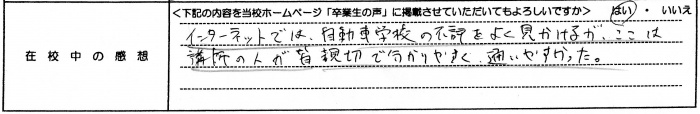 <下記の内容を当校ホームページ「卒業生の声」に掲載させていただいてもよろしいですか> はい ・ いいえ
在校中の感想
インターネットでは、自動車学校の不評をよく見かけるが、ここは
講師の人が皆親切で分かりやすく、通いやすかった。